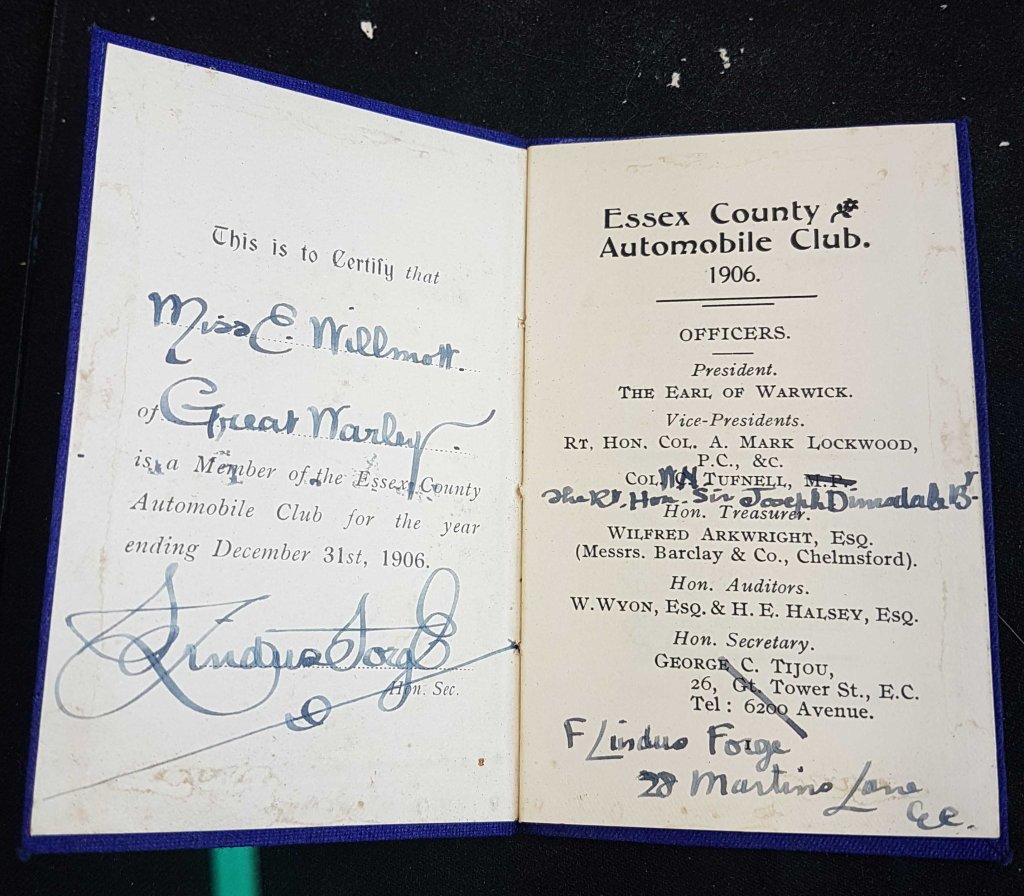 This is to Certify that
Miss E. Willmott.
of Great Warley.
is a Member of the Essex County
Automobile Club for the year
ending December 31st, 1906.
F Lindus Forge
Hon. Sec.
Essex County
Automobile Club.
1906.
OFFICERS.
President.
THE EARL OF WARWICK.
Vice-Presidents.
RT. HON. COL. A. MARK LOCKWOOD,
P.C., &C.
COL. N TUFNELL, M.P.
The Rt. Hon. Sir Joseph Dimsdale Bt
Hon. Treasurer.
WILFRED ARKWRIGHT, ESQ.
(Messrs. Barclay & Co., Chelmsford).
Hon. Auditors.
W. WYON, ESQ. & H. E. HALSEY, ESQ.
Hon. Secretary.
GEORGE C. TIJOU,
26, Gt. Tower St., E.C.
Tel : 6200 Avenue.
F Lindus Forge
28 Martins Lane
E.C.